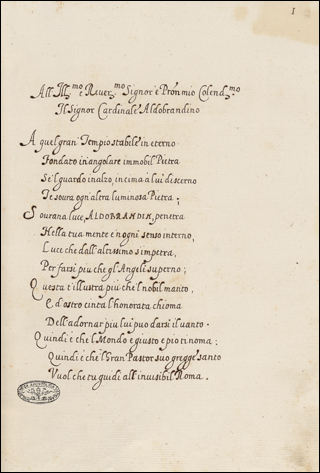 1
All'Ill.mo e Rever.mo Signor e Pron mio Colend.mo
Il Signor Cardinale Aldobrandino
A quel gran Tempio stabile in eterno
Fondato in angolare immobil Pietra
Se'l guardo inalzo, in cima à lui discerno
Te soura ogni altra luminosa Pietra;
Sourana luce, ALDOBRANDIN, penetra
Nella tua mente e'n ogni senso interno,
Luce che dall'altissimo s'impetra,
Per farsi più che gl'Angeli superno;
Questa t'illustra più che'l nobil manto,
E d'ostro cinta l'honorata chioma
Dell'adornar più lui puo darsi il uanto.
Quindi è che'l Mondo e giusto e pio ti noma;
Quindi è che'l Gran Pastor suo gregge santo
Vuol che tu guidi all'inuisibil Roma.